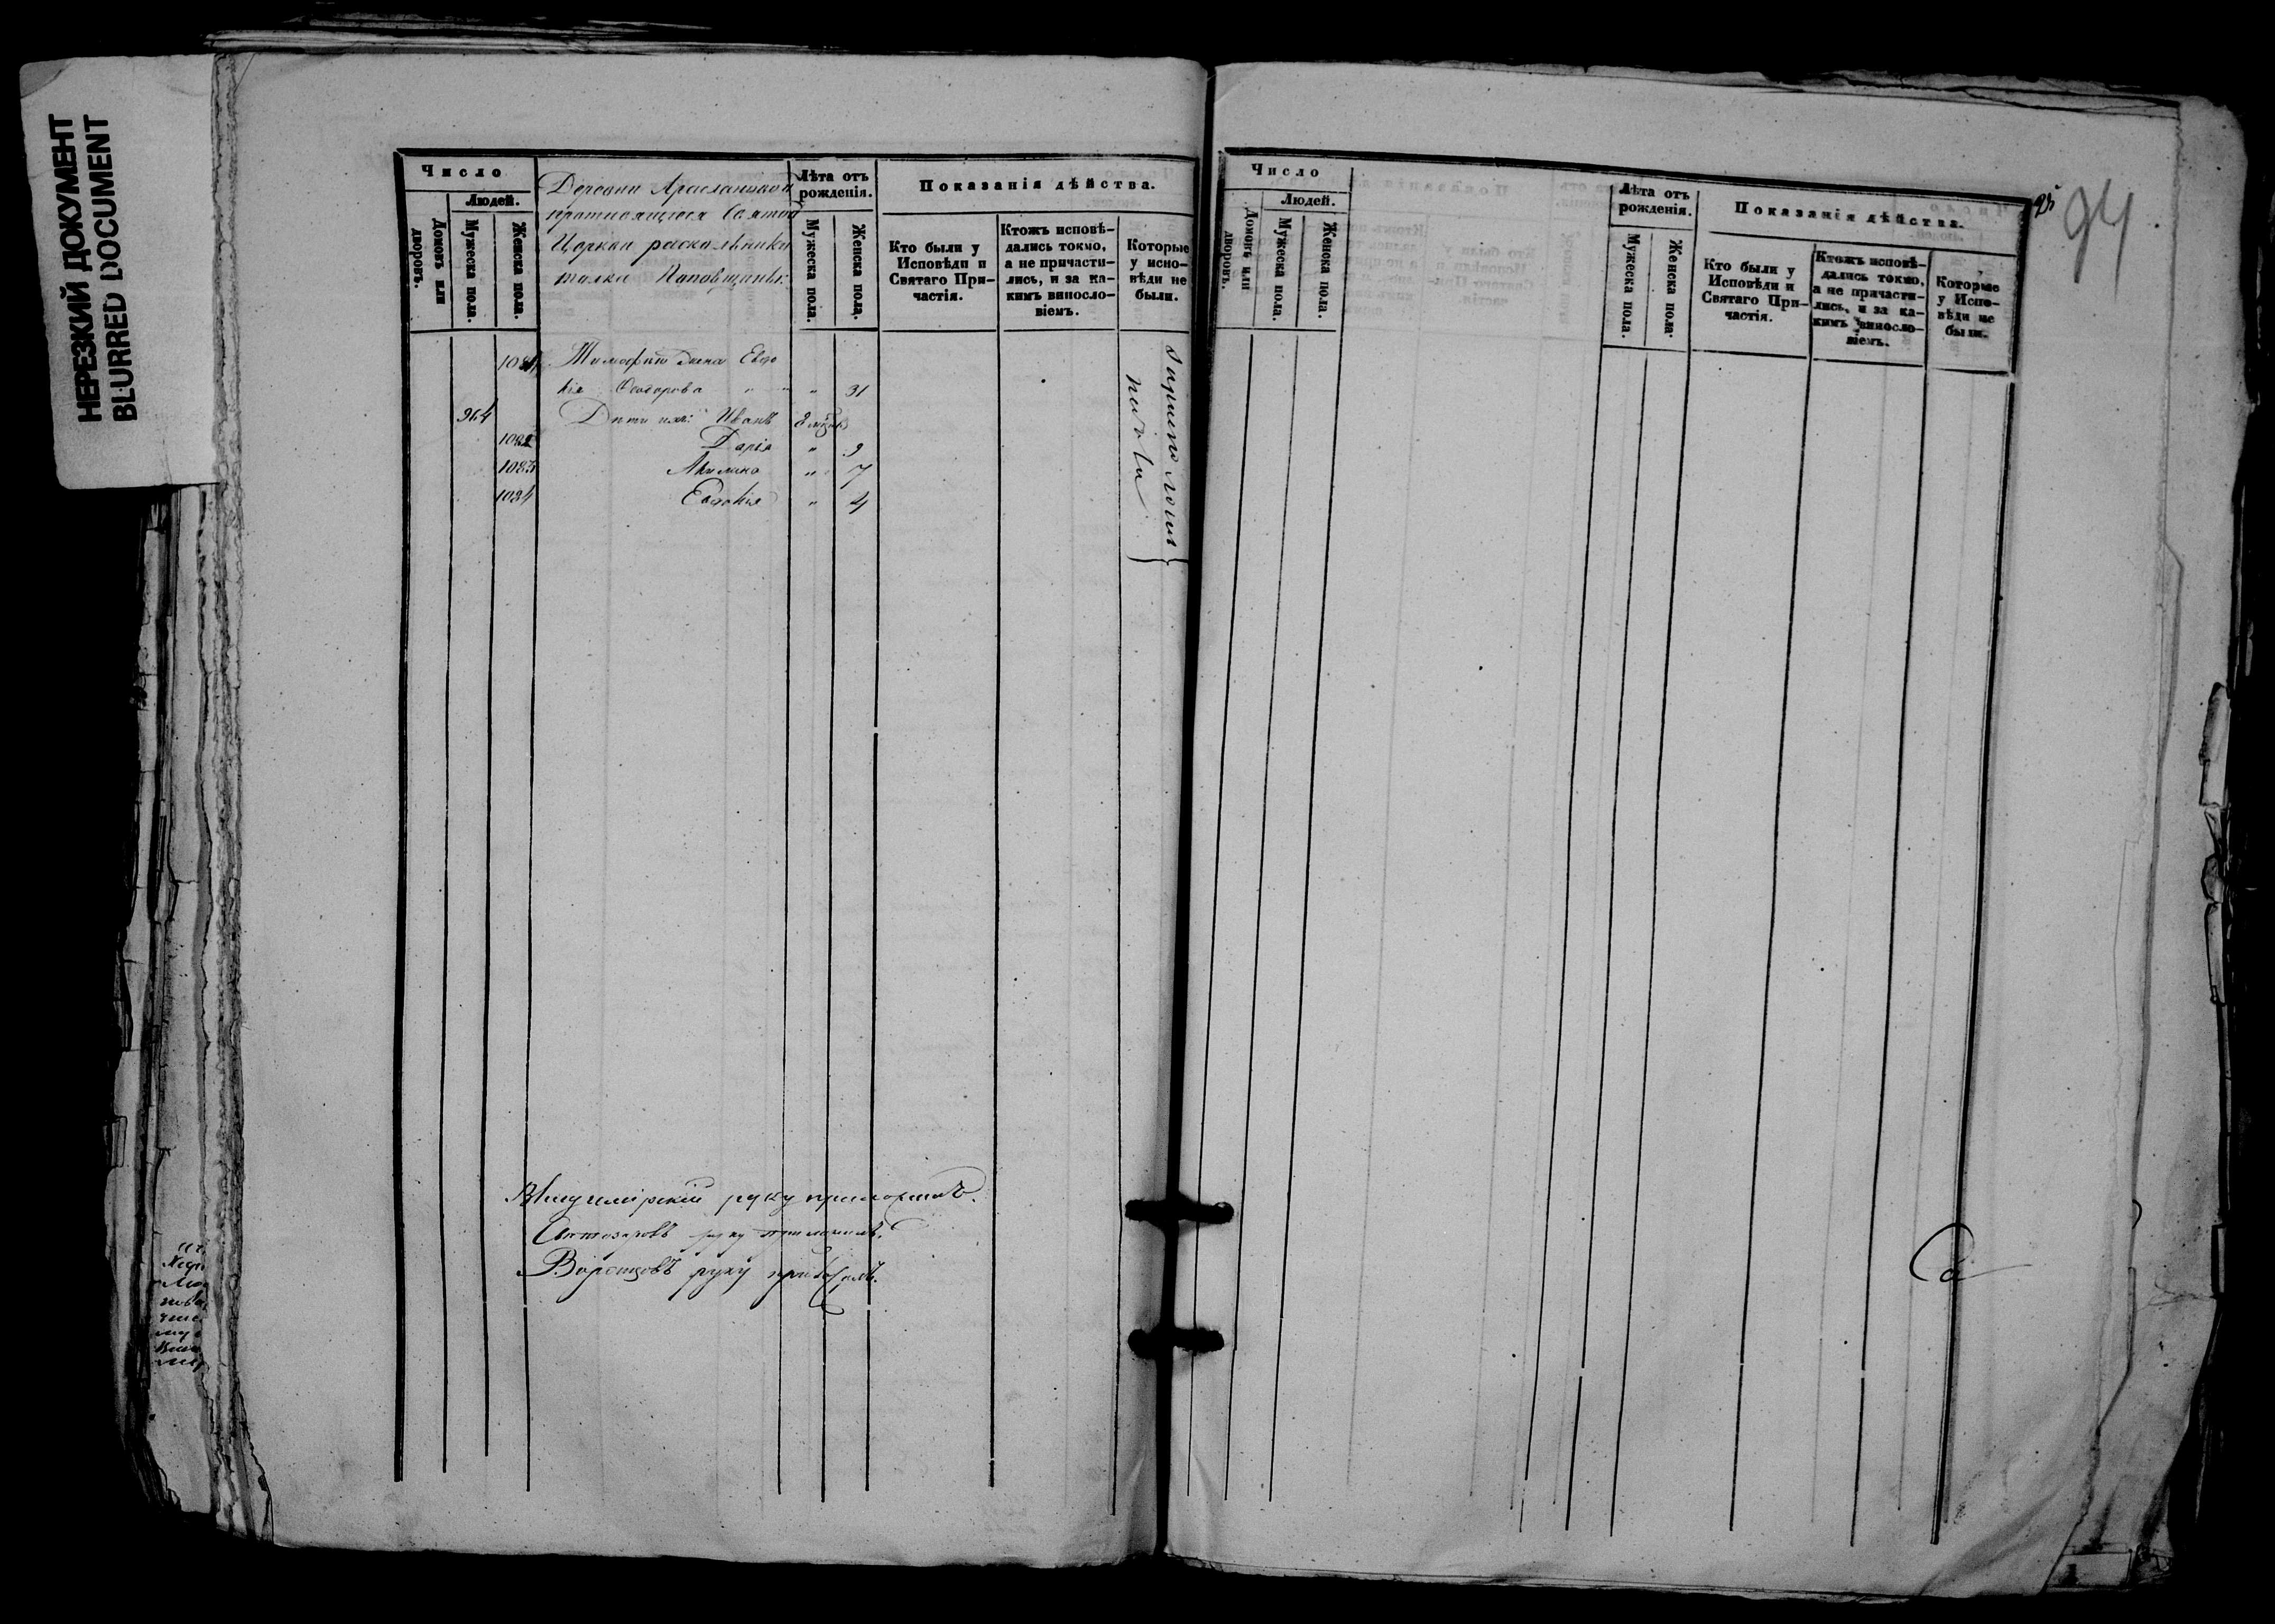 НЕРЕЗКИЙ ДОКУМЕНТ
BLURRED DOCUMENT
Число
Людей.
Домовъ или дворовъ.
Мужеска пола.
Женска пола.
Деревни
Святой
Церкви раскольники
толка Поповщины.
Лѣта отъ рожденія.
Мужеска пола.
Женска пола.
Показанія дѣйства.
Кто были у Исповѣди и Святаго Причастія.
Ктожъ исповѣдались токмо, а не причастились, и за какимъ винословіемъ.
Которые у исповѣди не были.
1081 Тимофея жена Евдо
кія Ѳеодорова " 31
964 Дѣти ихъ: Иванъ
1082 Дарія " 9
1083 Акилина " 7
1084 Евдокія " 4
руку приложилъ.
руку приложилъ.
Воронцовъ руку приложилъ.
Число
Людей.
Домовъ или дворовъ.
Мужеска пола.
Женска пола.
Лѣта отъ рожденія.
Мужеска пола.
Женска пола.
Показанія дѣйства.
Кто были у Исповѣди и Святаго Причастія.
Ктожъ исповѣдались токмо, а не причастились, и за какимъ винословіемъ.
Которые у Исповѣди не были.
94